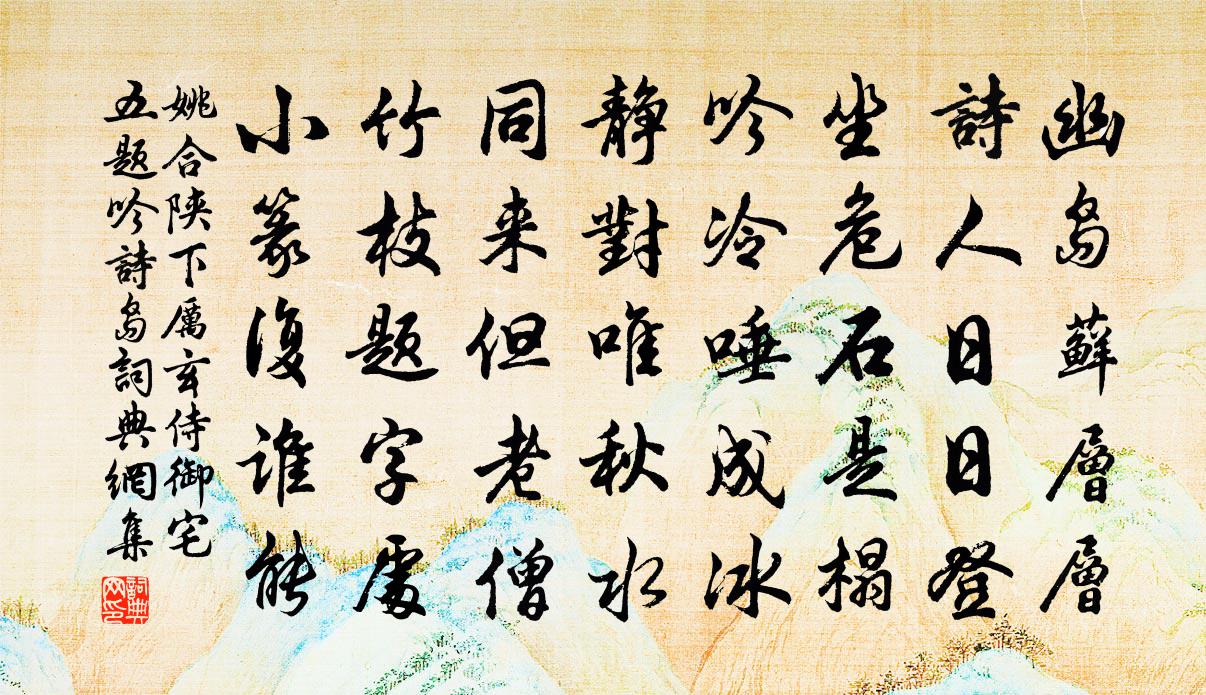 幽島蘚層層
詩人日日登
坐危石是榻
吟冷唾成冰
静對唯秋水
同来但老僧
竹枝题字處
小篆復誰能
姚合陕下厲玄侍御宅
五题吟詩島詞典網集
詞典
网印